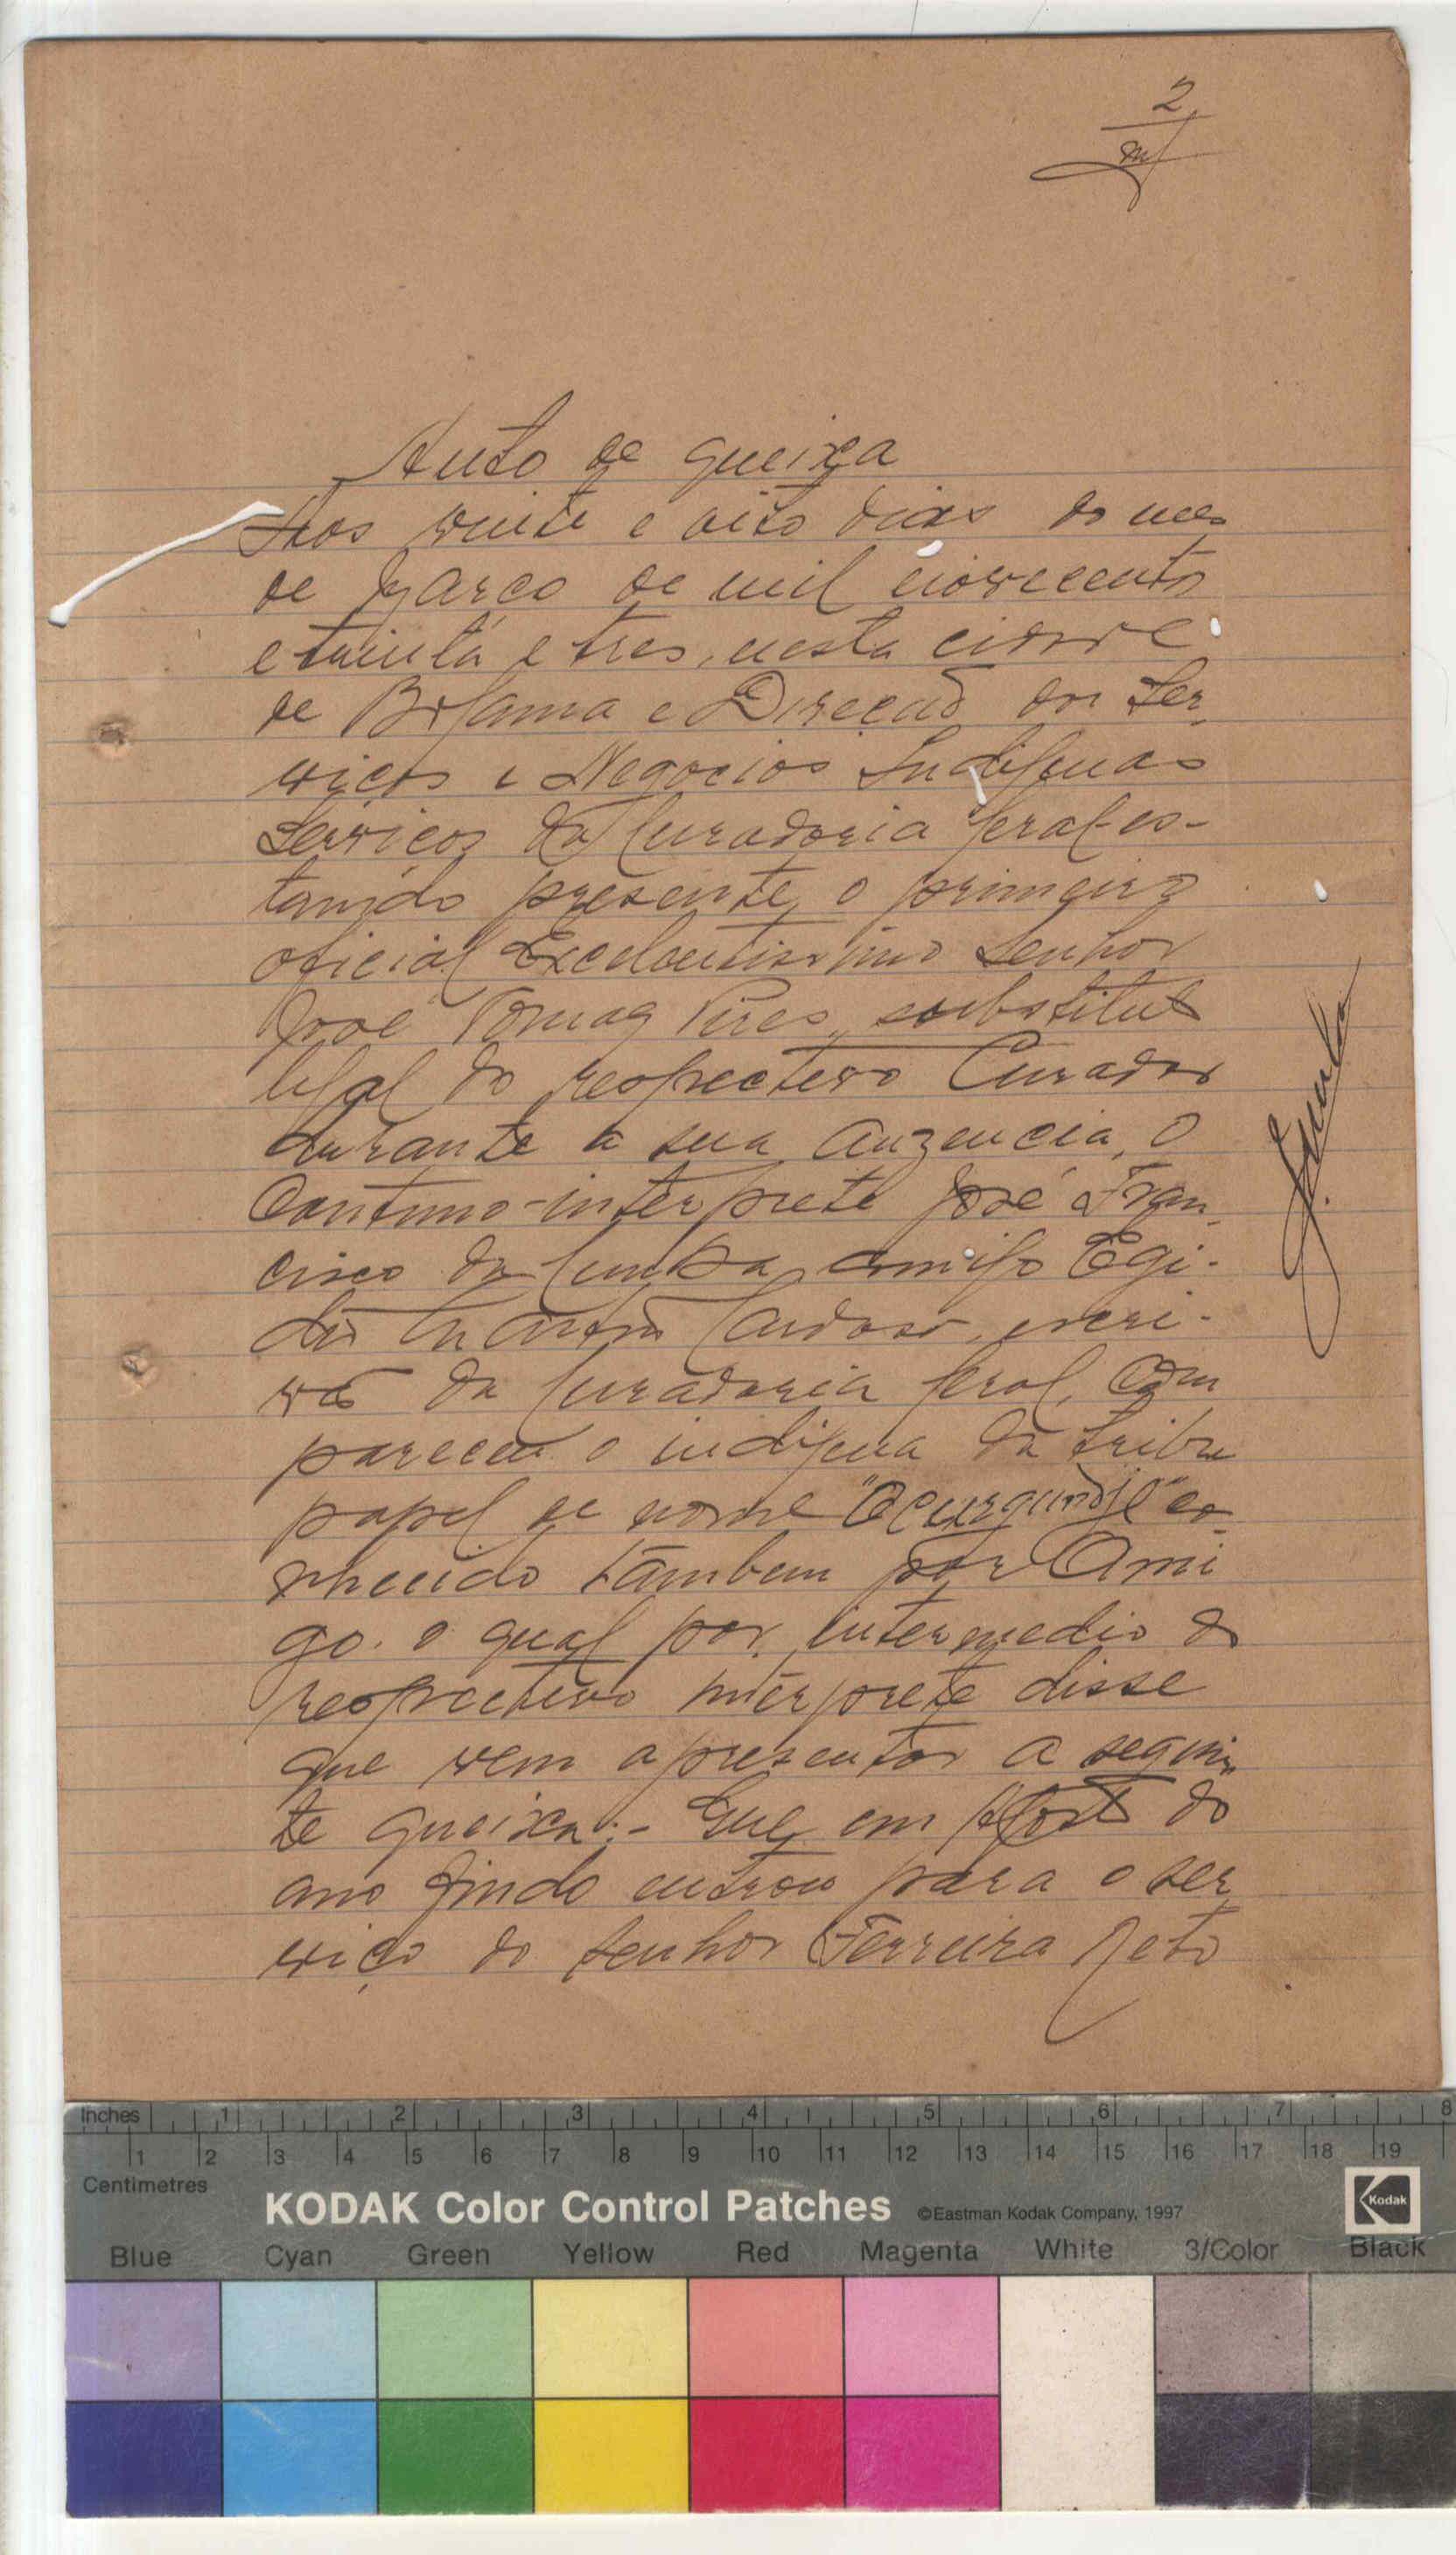 2
Auto de queixa
Aos vinte e oito dias do mes
de Março de mil novecentos
e trinta e tres, nesta cidade
de Bolama e Direcção dos Ser-
viços e Negocios Indigenas
Serviços da Curadoria Geral es-
tando presente o primeiro
oficial Excelentissimo Senhor
José Tomaz Pires, substituto
legal do respectivo Curador
durante a sua auzencia, o
Contimo-interprete José Fran-
cisco da Cunha, comigo Egi-
dio Cardoso, escri-
vão da Curadoria Geral, com
pareceu o indigena da tribu
papel de nome "Ocurgundjé" co-
nhecido tambem por Ami
go. o qual por intermedio do
respectivo interprete disse
que vem apresentar a seguin-
te queixa:- Que em Agosto do
ano findo entrou para o ser
viço do Senhor Ferreira Neto
J. Cunha
Inches 1 2 3 4 5 6 7 8
1 2 3 4 5 6 7 8 9 10 11 12 13 14 15 16 17 18 19
Centimetres
KODAK Color Control Patches ©Eastman Kodak Company, 1997 Kodak
Blue Cyan Green Yellow Red Magenta White 3/Color Black